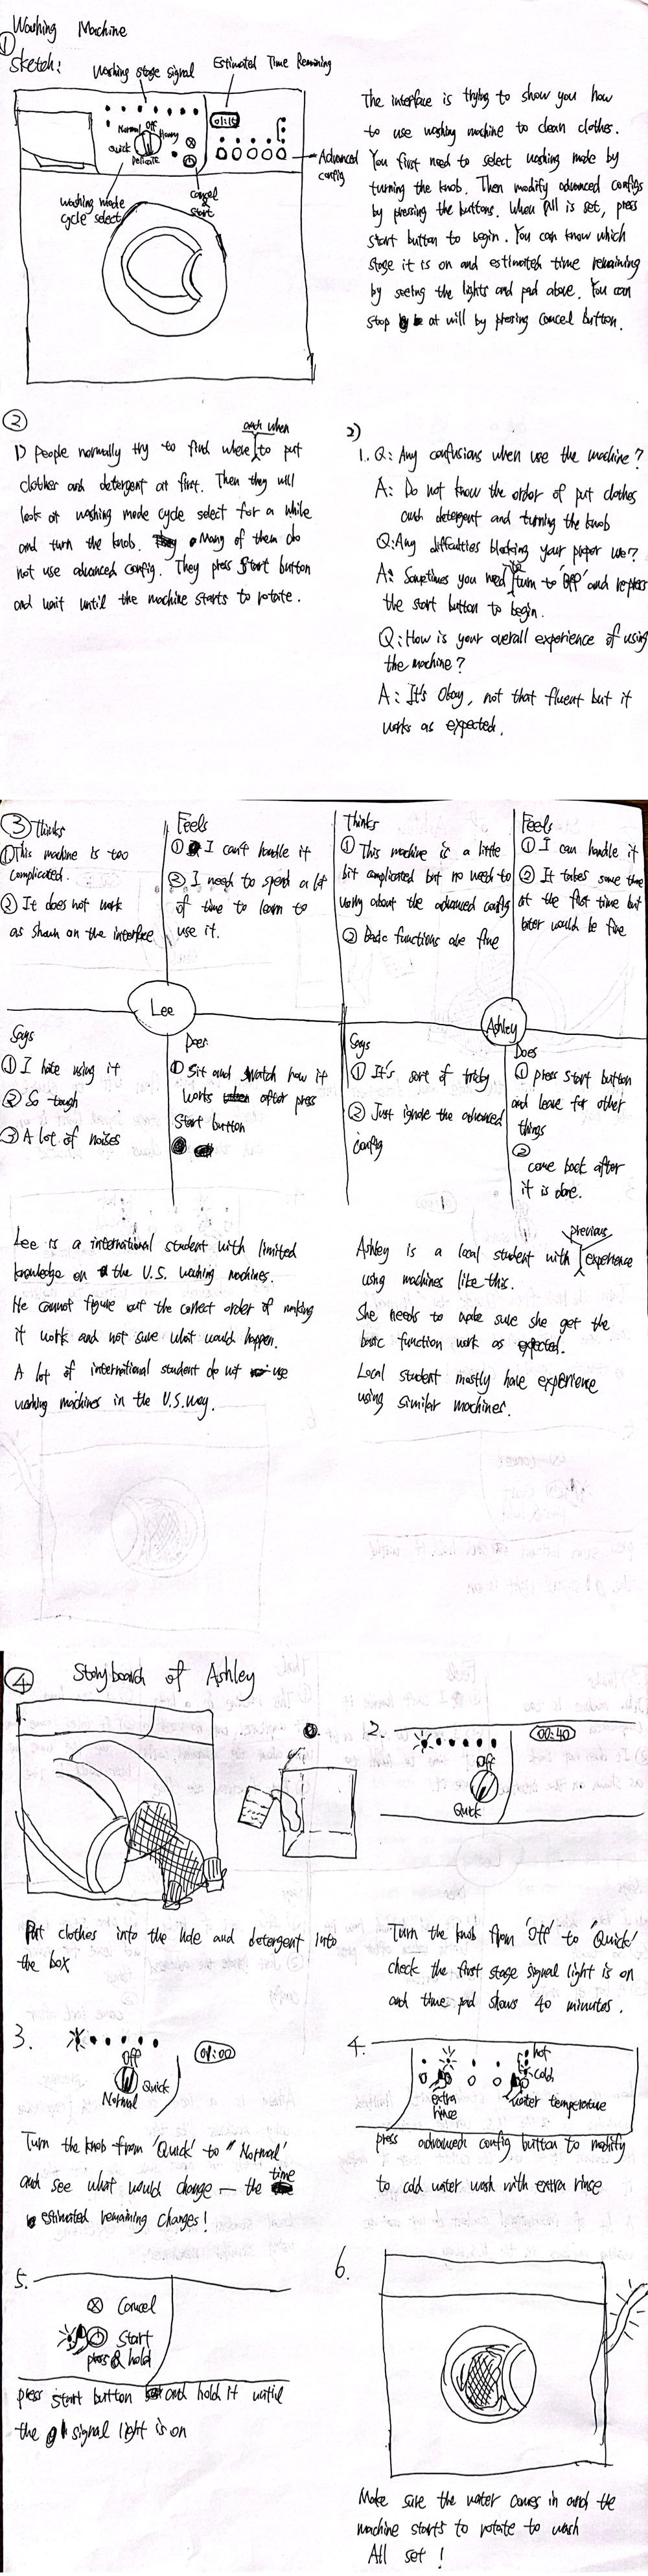 Washing Machine
①
Sketch:
Washing stage signal
Estimated Time Remaining
01:10
Normal Off Heavy
Quick
Delicate
washing mode
cycle select
cancel
&
start
Advanced
config
The interface is trying to show you how
to use washing machine to clean clothes.
You first need to select washing mode by
turning the knob. Then modify advanced configs
by pressing the buttons. When all is set, press
start button to begin. You can know which
stage it is on and estimated time remaining
by seeing the lights and pad above. You can
stop at will by pressing cancel button.
②
1) People normally try to find where and when to put
clothes and detergent at first. Then they will
look at washing mode cycle select for a while
and turn the knob. Many of them do
not use advanced config. They press start button
and wait until the machine starts to rotate.
2)
1. Q: Any confusions when use the machine?
A: Do not know the order of put clothes
and detergent and turning the knob
Q: Any difficulties blocking your proper use?
A: Sometimes you need to turn to 'Off' and repress
the start button to begin.
Q: How is your overall experience of using
the machine?
A: It's Okay, not that fluent but it
works as expected.
③ Thinks
① This machine is too
complicated.
② It does not work
as shown on the interface
Feels
① I can't handle it
② I need to spend a lot
of time to learn to
use it.
Lee
Says
① I hate using it
② So tough
③ A lot of noises
Does
① Sit and watch how it
works after press
Start button
Thinks
① This machine is a little
bit complicated but no need to
worry about the advanced config
② Basic functions are fine
Feels
① I can handle it
② It takes some time
at the first time but
later would be fine
Ashley
Says
① It's sort of tricky
② Just ignore the advanced
config
Does
① press start button
and leave for other
things
②
come back after
it is done.
Lee is a international student with limited
knowledge on the U.S. washing machines.
He cannot figure out the correct order of making
it work and not sure what would happen.
A lot of international student do not use
washing machines in the U.S. way.
Ashley is a local student with previous experience
using machines like this.
She needs to make sure she get the
basic function work as expected.
Local student mostly have experience
using similar machines.
④ Storyboard of Ashley
Put clothes into the hole and detergent into
the box
2.
00:40
Off
Quick
Turn the knob from 'Off' to 'Quick'
check the first stage signal light is on
and time pad shows 40 minutes.
3.
01:00
Off
Quick
Normal
Turn the knob from 'Quick' to "Normal"
and see what would change — the time
estimated remaining changes!
4.
hot
cold
extra
rinse
water temperature
press advanced config button to modify
to cold water wash with extra rinse
5.
Cancel
Start
press & hold
press start button and hold it until
the signal light is on
6.
Make sure the water comes in and the
machine starts to rotate to wash
All set !